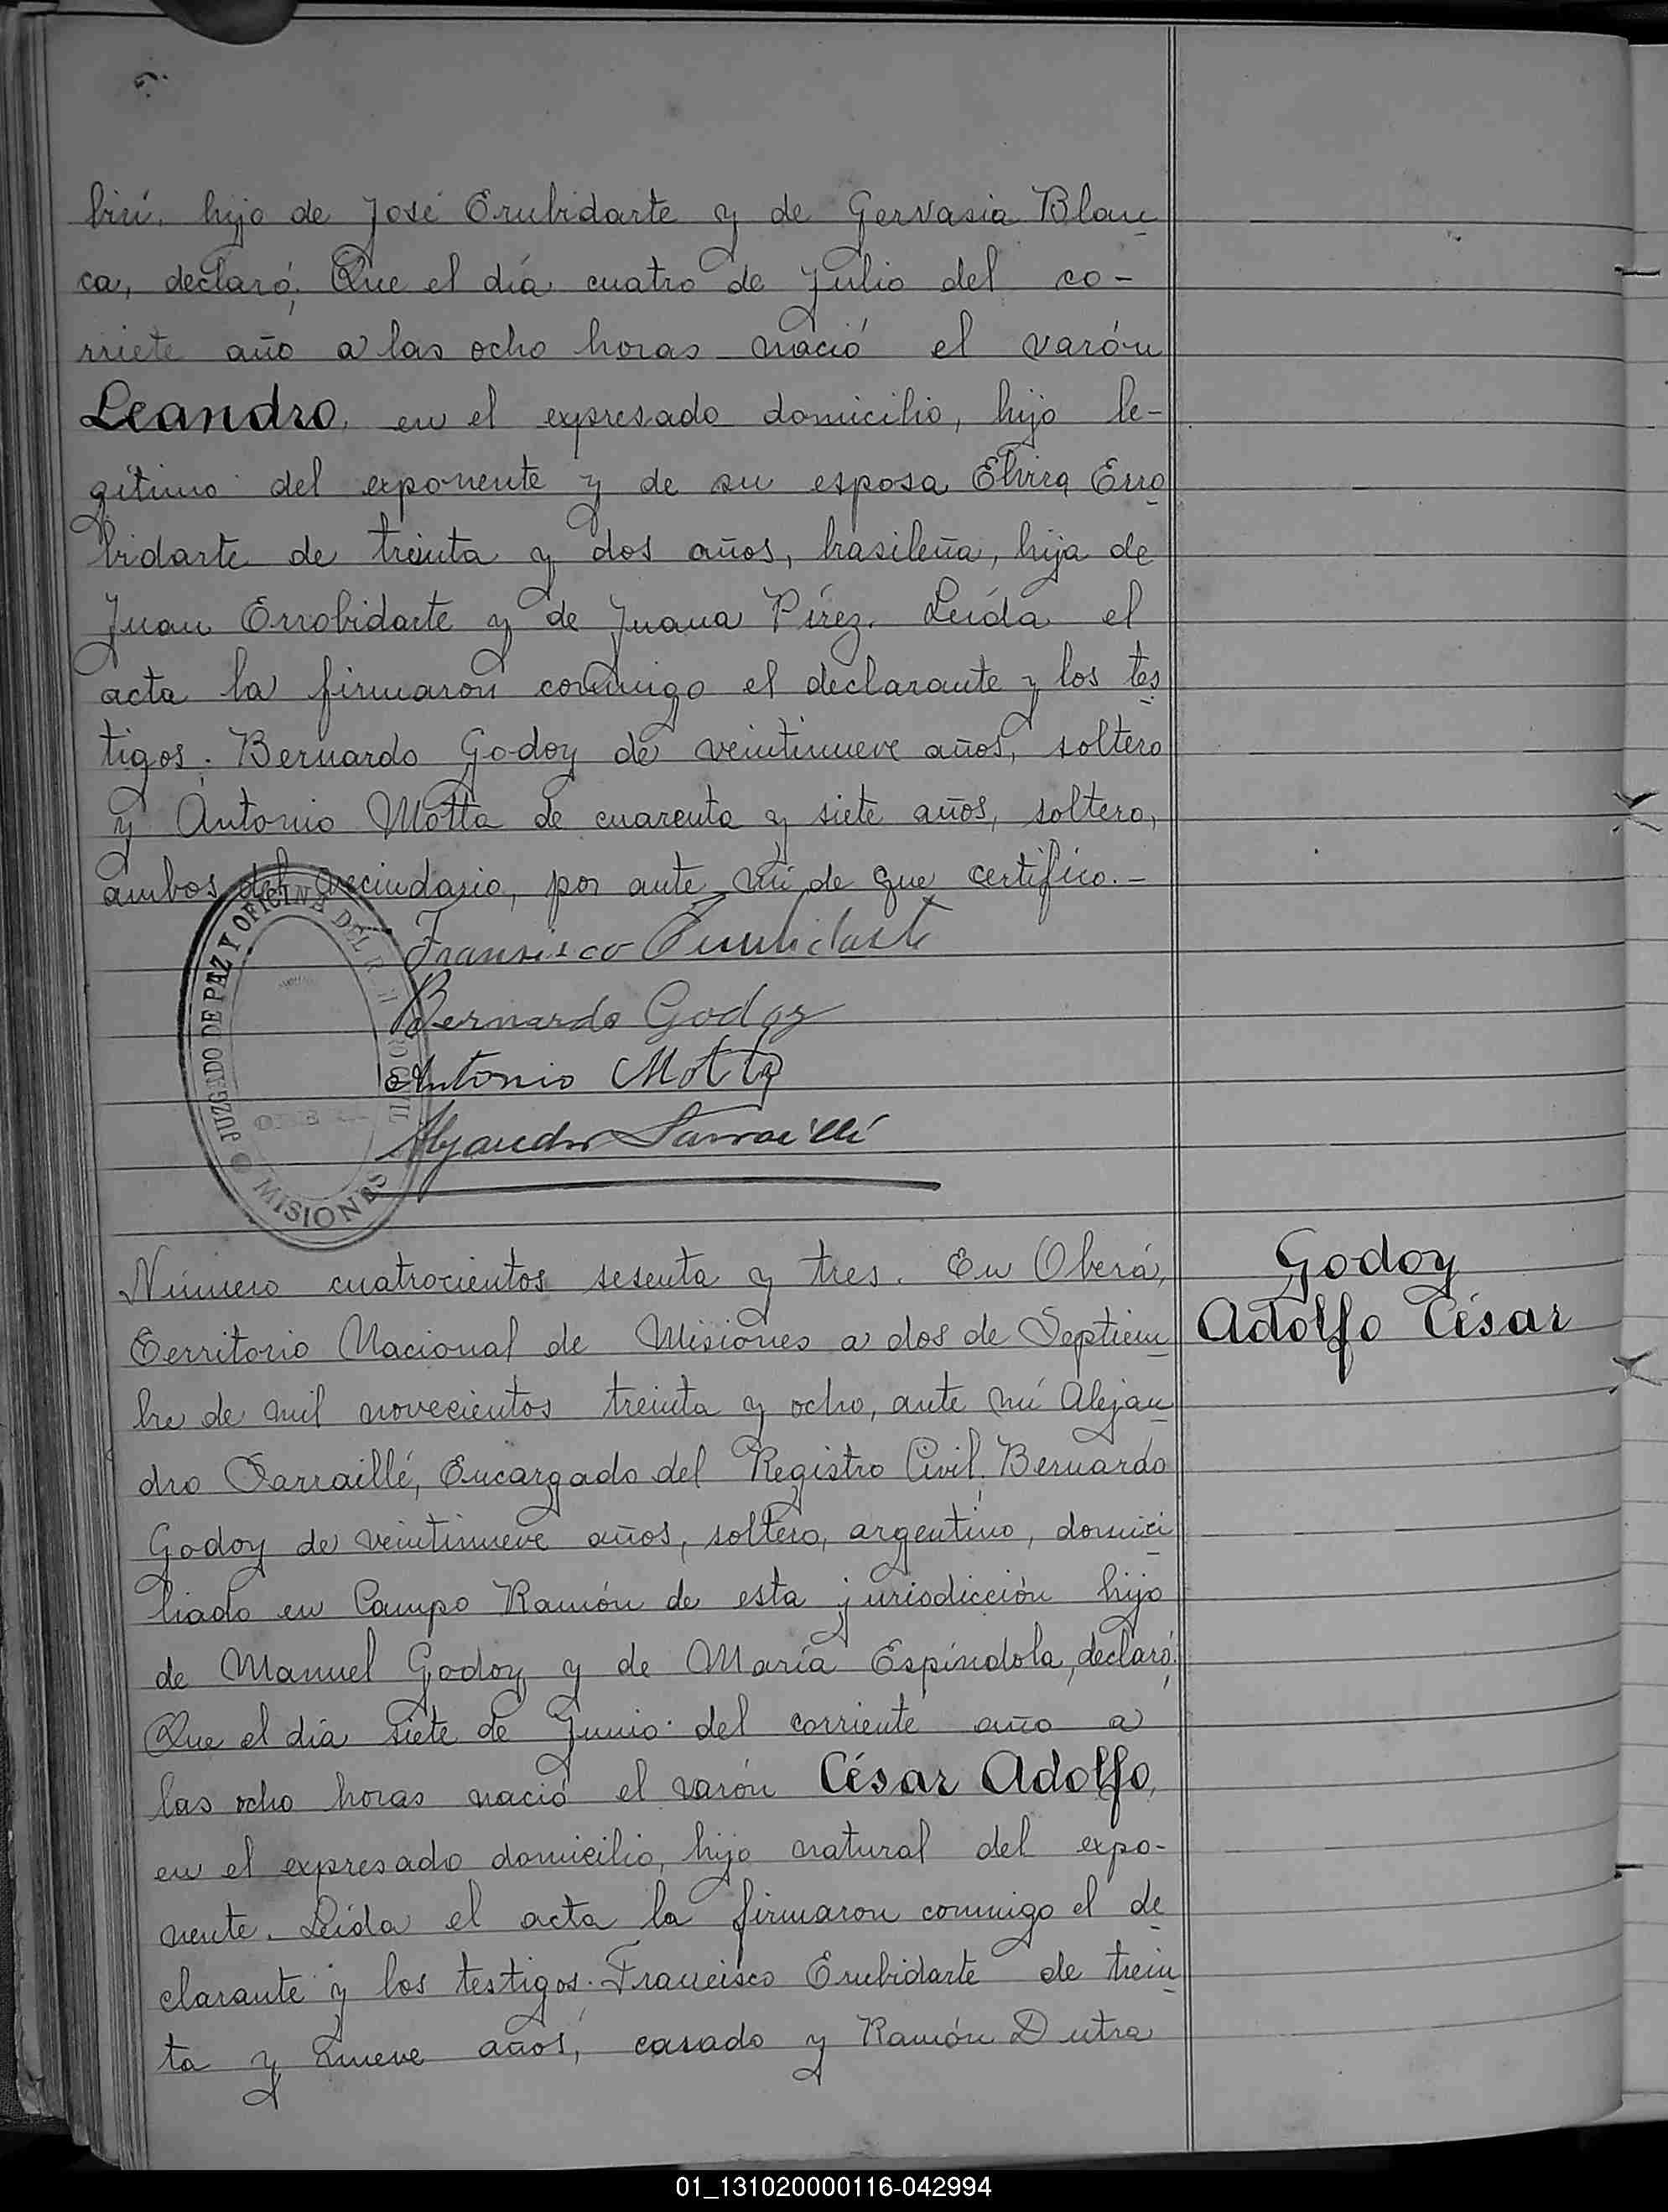 birí, hijo de José Erubidarte y de Gervasia Blan
ca, declaró: Que el día cuatro de Julio del co-
rriete año a las ocho horas nació el varón
Leandro, en el expresado domicilio, hijo le-
gítimo del exponente y de su esposa Elvira Erro
bidarte de treinta y dos años, brasileña, hija de
Juan Errobidarte y de Juana Pírez. Leída el
acta la firmaron conmigo el declarante y los tes
tigos: Bernardo Godoy de veintinueve años, soltero
y Antonio Motta de cuarenta y siete años, soltero,
ambos del vecindario, por ante mí de que certifico.-
JUZGADO DE PAZ Y OFICINA DEL CIVIL
MISIONES
Fransisco Erubidarte
Bernardo Godoy
Antonio Motta
Alejandro Sarraillé
Número cuatrocientos sesenta y tres. En Oberá,
Territorio Nacional de Misiones a dos de Septiem
bre de mil novecientos treinta y ocho, ante mí Alejan
dro Sarraillé, Encargado del Registro Civil: Bernardo
Godoy de veintinueve años, soltero, argentino, domici
liado en Campo Ramón de esta jurisdicción hijo
de Manuel Godoy y de María Espíndola, declaró:
Que el día siete de Junio del corriente año a
las ocho horas nació el varón César Adolfo,
en el expresado domicilio, hijo natural del expo-
nente. Leída el acta la firmaron conmigo el de
clarante y los testigos: Francisco Erubidarte de trein
ta y nueve años, casado y Ramón Dutra
Godoy
Adolfo César
01_131020000116-042994